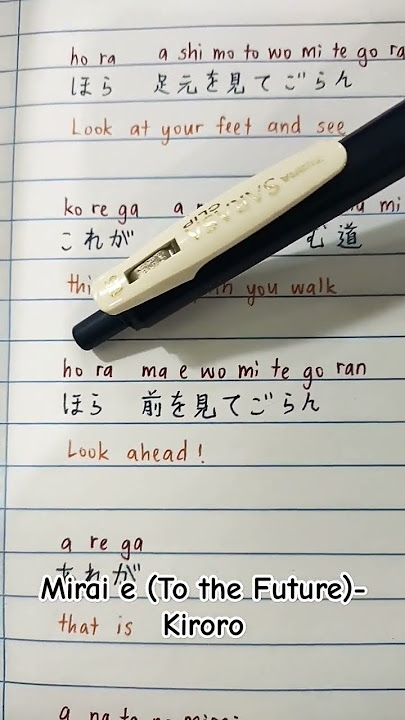 ho ra a shi mo to wo mi te go ra
ほら 足元を見てごらん
Look at your feet and see
ko re ga a mi
これが む道
thi you walk
SARASA CLIP
ho ra ma e wo mi te go ran
ほら 前を見てごらん
Look ahead!
a re ga
あれが
Mirai e (To the Future)-
Kiroro
that is